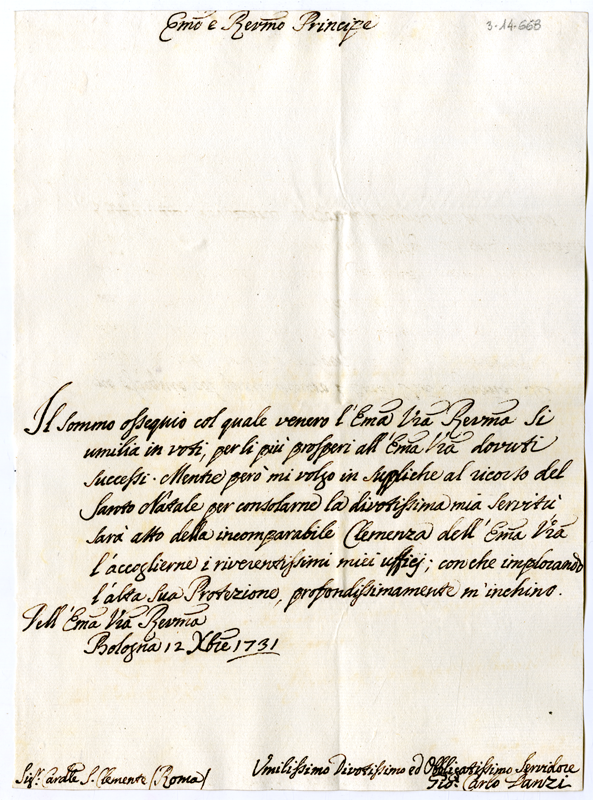 Emo e Revmo Principe
3-14-668
Il sommo ossequio col quale venero l'Ema Vra Revma si
umilia in voti, per li più prosperi all'Ema Vra dovuti
successi. Mentre però mi volgo in suppliche al ricorso del
Santo Natale per consolarne la divotissima mia servitù
sarà atto della incomparabile Clemenza dell'Ema Vra
l'accoglierne i riverentissimi miei ufficj; con che implorando
l'alta sua Protezione, profondissimamente m'inchino.
Dell'Ema Vra Revma
Bologna 12 Xbre 1731
Sigr. Cardle S. Clemente (Roma)
Umilissimo Divotissimo ed Obbligatissimo Servidore
Gio: Carlo Lanzi